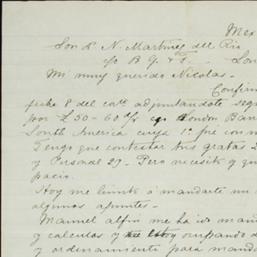 Mex
Sor D. N. Martinez del Rio
c/o B. Y. & F. Lon
Mi muy querido Nicolas.
Confirm
fecha 8 del corte adjuntandote seg
por £50-60 c/. London Ban
South America cuya 1a fué con m
Tengo que contestar tus gratas 2
y Personal 29. Pero necesito q que
pacio.
Hoy me limito á mandarte un
algunos apuntes.
Manuel alfin me ha
y calculos y estoy ocupando d
y ordenamiento para manda